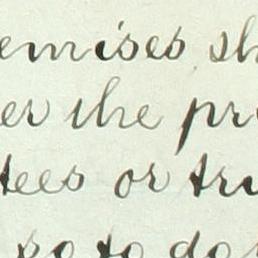 emises sh
er the pr
tees or tru
so to do